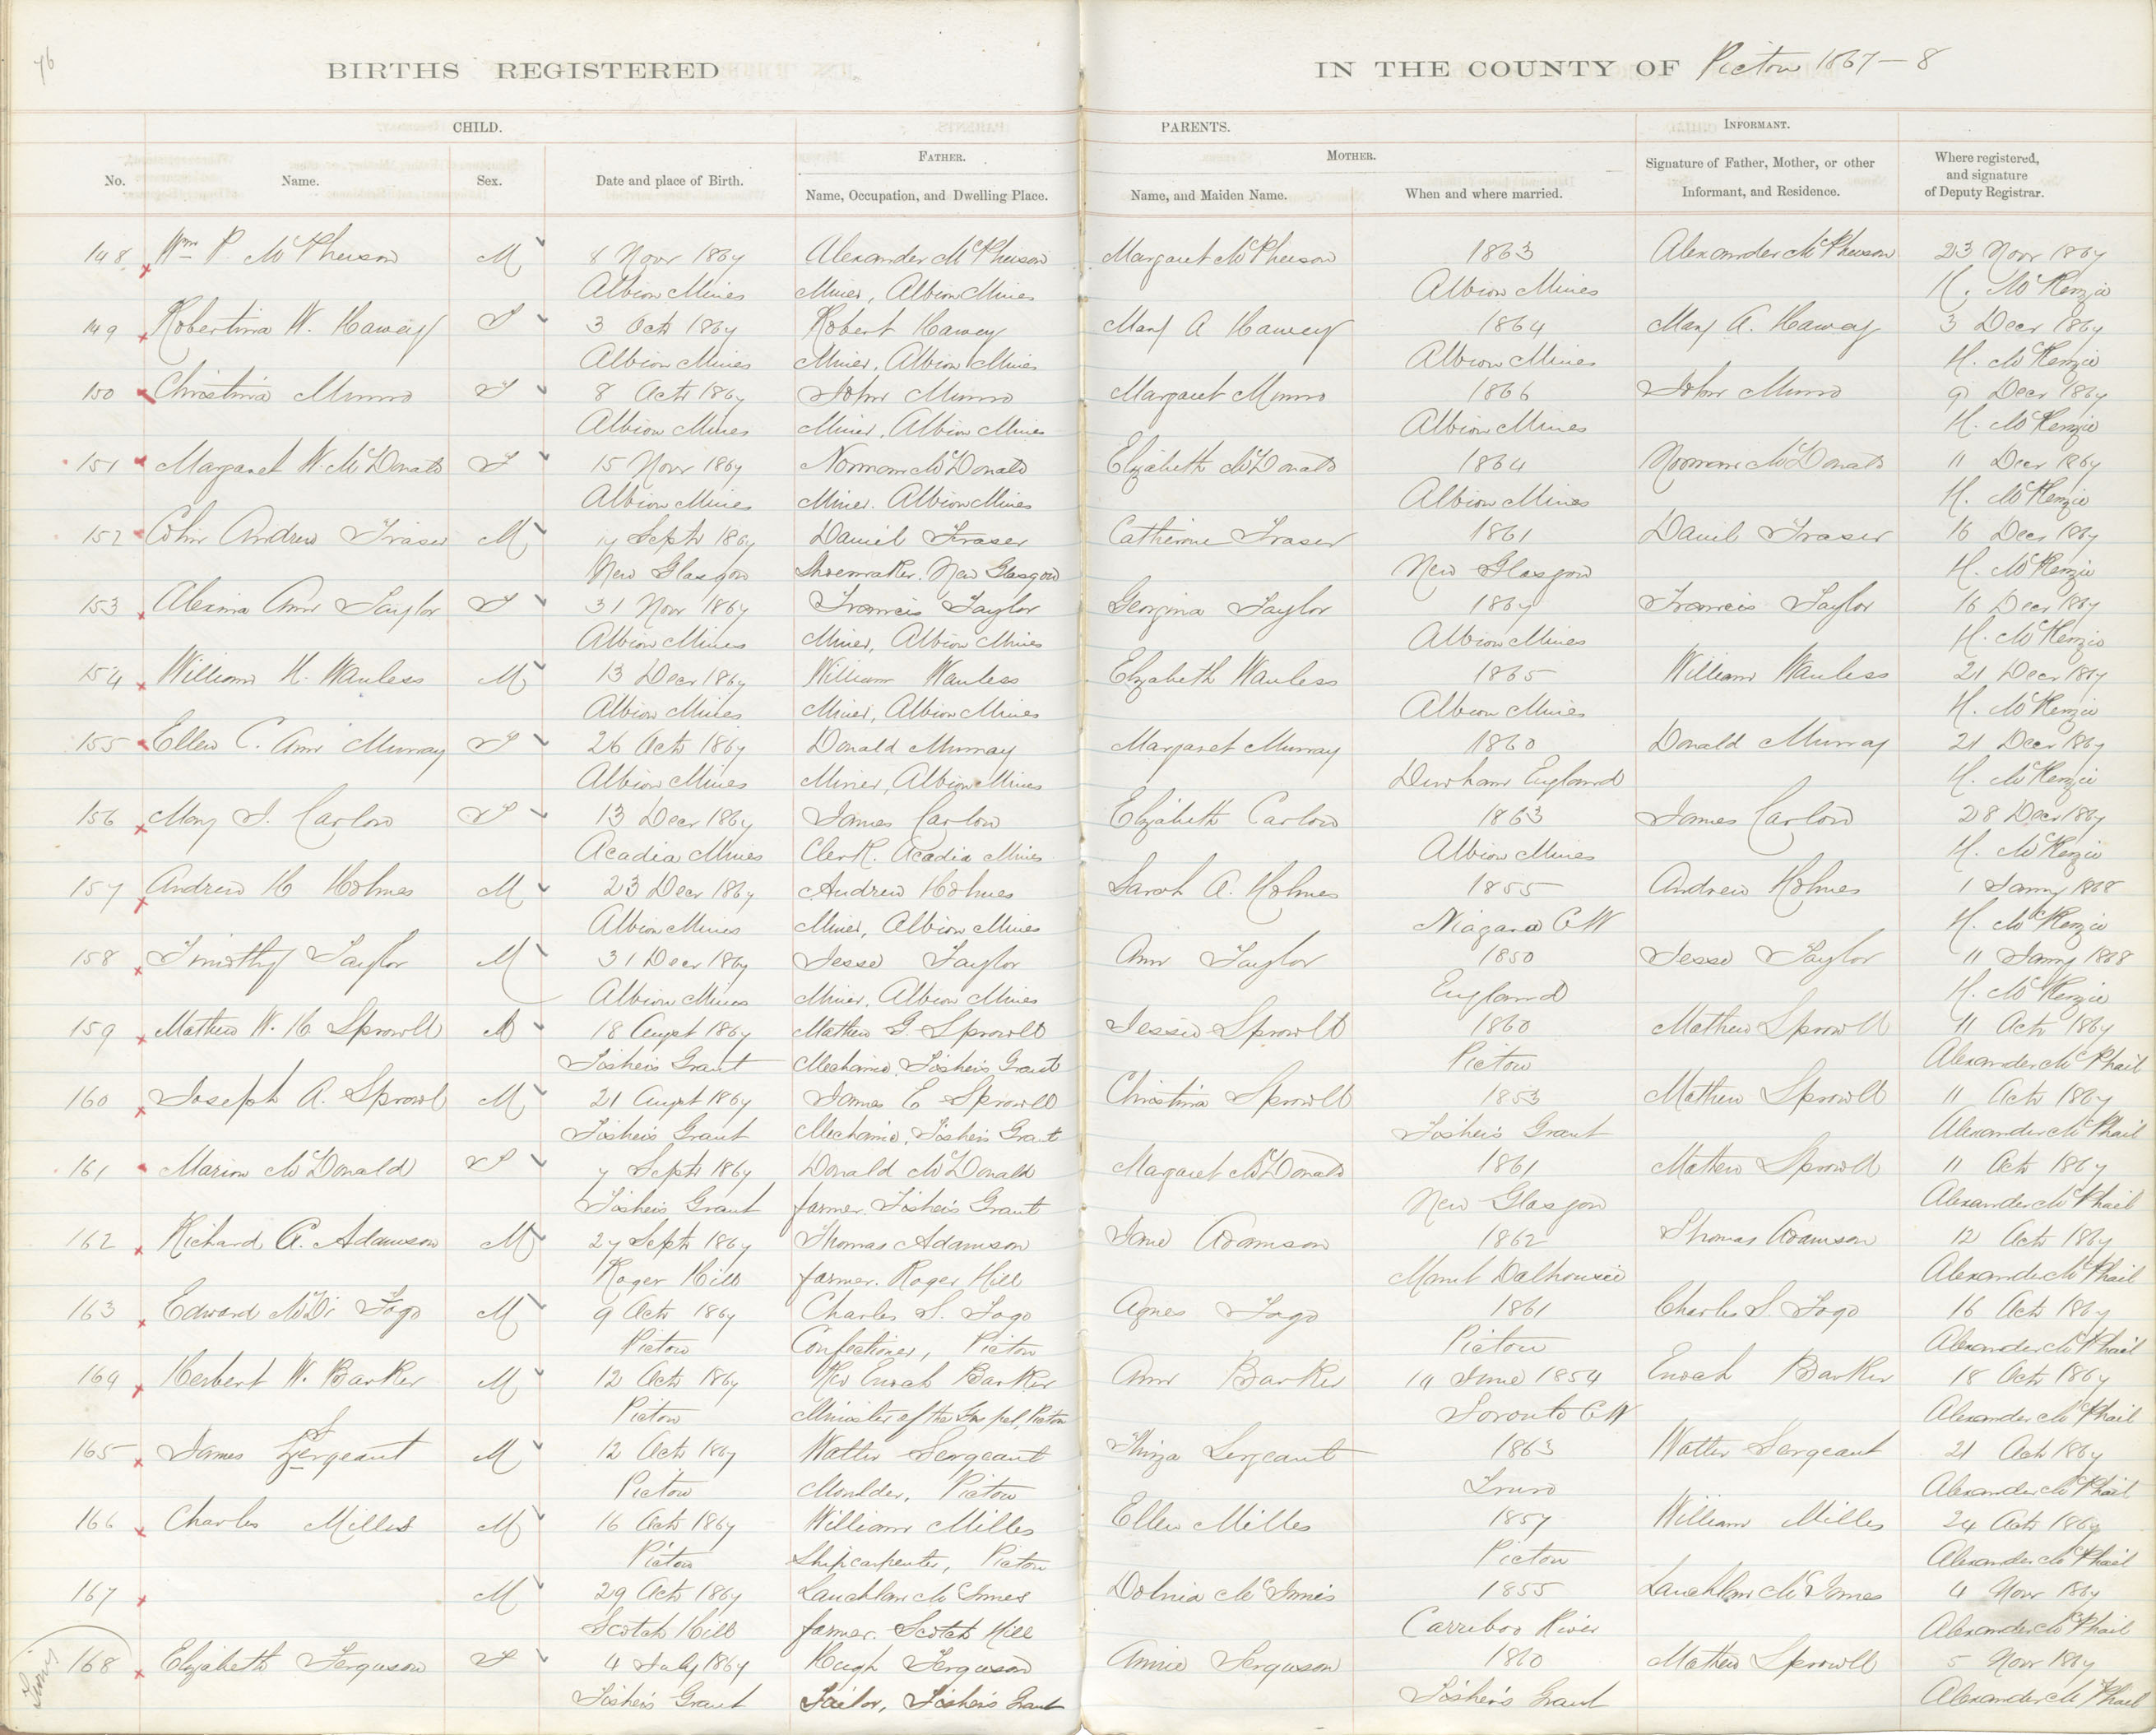 76
BIRTHS REGISTERED IN THE COUNTY OF Pictou 1867-8
CHILD. PARENTS. INFORMANT.
No. Name. Sex. Date and place of Birth. FATHER. Name, Occupation, and Dwelling Place. MOTHER. Name, and Maiden Name. When and where married. Signature of Father, Mother, or other Informant, and Residence. Where registered, and signature of Deputy Registrar.
148 Wm P. McPherson M 8 Novr 1867 Alexander McPherson Margaret McPherson 1863 Alexander McPherson 23 Novr 1867
Albion Mines Miner, Albion Mines Albion Mines H. McKenzie
149 Robertina W. Hawey F 3 Octr 1867 Robert Hawey Mary A Hawey 1864 Mary A. Hawey 3 Decr 1867
Albion Mines Miner, Albion Mines Albion Mines H. McKenzie
150 Christina Munro F 8 Octr 1867 John Munro Margaret Munro 1866 John Munro 9 Decr 1867
Albion Mines Miner, Albion Mines Albion Mines H. McKenzie
151 Margaret W. McDonald F 15 Novr 1867 Norman McDonald Elizabeth McDonald 1864 Norman McDonald 11 Decr 1867
Albion Mines Miner. Albion Mines Albion Mines H. McKenzie
152 Colin Andrew Fraser M 17 Septr 1867 Daniel Fraser Catherine Fraser 1861 Daniel Fraser 16 Decr 1867
New Glasgow Shoemaker. New Glasgow New Glasgow H. McKenzie
153 Alexina Ann Taylor F 31 Novr 1867 Francis Taylor Georgina Taylor 1867 Francis Taylor 16 Decr 1867
Albion Mines Miner, Albion Mines Albion Mines H. McKenzie
154 William H. Wanless M 13 Decr 1867 William Wanless Elizabeth Wanless 1865 William Wanless 21 Decr 1867
Albion Mines Miner, Albion Mines Albion Mines H. McKenzie
155 Ellen C. Ann Murray F 26 Octr 1867 Donald Murray Margaret Murray 1860 Donald Murray 21 Decr 1867
Albion Mines Miner, Albion Mines Durham England H. McKenzie
156 Mary J. Carlow F 13 Decr 1867 James Carlow Elizabeth Carlow 1863 James Carlow 28 Decr 1867
Acadia Mines Clerk. Acadia Mines Albion Mines H. McKenzie
157 Andrew H Holmes M 23 Decr 1867 Andrew Holmes Sarah A. Holmes 1855 Andrew Holmes 1 Jany 1868
Albion Mines Miner, Albion Mines Niagara CW H. McKenzie
158 Timothy Taylor M 31 Decr 1867 Jesse Taylor Ann Taylor 1850 Jesse Taylor 11 Jany 1868
Albion Mines Miner, Albion Mines England H. McKenzie
159 Mathew W. H Sprowll M 18 Augst 1867 Mathew G. Sprowll Jessie Sprowll 1860 Mathew Sprowll 11 Octr 1867
Fishers Grant Mechanic, Fishers Grant Pictou Alexander McPhail
160 Joseph A. Sprowl M 21 Augst 1867 James E Sprowll Christina Sprowll 1853 Mathew Sprowll 11 Octr 1867
Fishers Grant Mechanic, Fishers Grant Fishers Grant Alexander McPhail
161 Marion McDonald F 7 Septr 1867 Donald McDonald Margaret McDonald 1861 Mathew Sprowll 11 Octr 1867
Fishers Grant farmer. Fishers Grant New Glasgow Alexander McPhail
162 Richard A. Adamson M 27 Septr 1867 Thomas Adamson Jane Adamson 1862 Thomas Adamson 12 Octr 1867
Roger Hill farmer. Roger Hill Mount Dalhousie Alexander McPhail
163 Edward Fogo M 9 Octr 1867 Charles S. Fogo Agnes Fogo 1861 Charles S. Fogo 16 Octr 1867
Pictou Confectioner, Pictou Pictou Alexander McPhail
164 Herbert W. Barker M 12 Octr 1867 Rev Enoch Barker Ann Barker 14 June 1854 Enoch Barker 18 Octr 1867
Pictou Minister of the Gospel, Pictou Toronto CW Alexander McPhail
165 James Sergeant M 12 Octr 1867 Walter Sergeant Thirza Sergeant 1863 Walter Sergeant 21 Octr 1867
Pictou Moulder, Pictou Truro Alexander McPhail
166 Charles Milles M 16 Octr 1867 William Milles Ellen Milles 1857 William Milles 24 Octr 1867
Pictou Shipcarpenter, Pictou Pictou Alexander McPhail
167 M 29 Octr 1867 Lauchlan McInnes Dolnia McInnis 1855 Lauchlan McInnes 4 Novr 1867
Scotch Hill farmer. Scotch Hill Carreboo River Alexander McPhail
168 Elizabeth Ferguson F 4 July 1867 Hugh Ferguson Annie Ferguson 1860 Mathew Sprowll 5 Novr 1867
Twins Fishers Grant Tailor, Fishers Grant Fishers Grant Alexander McPhail